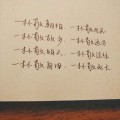 一杯敬朝阳 一杯敬月光
一杯敬故乡 一杯敬远方
一杯敬明天 一杯敬过往
一杯敬 一杯敬死亡